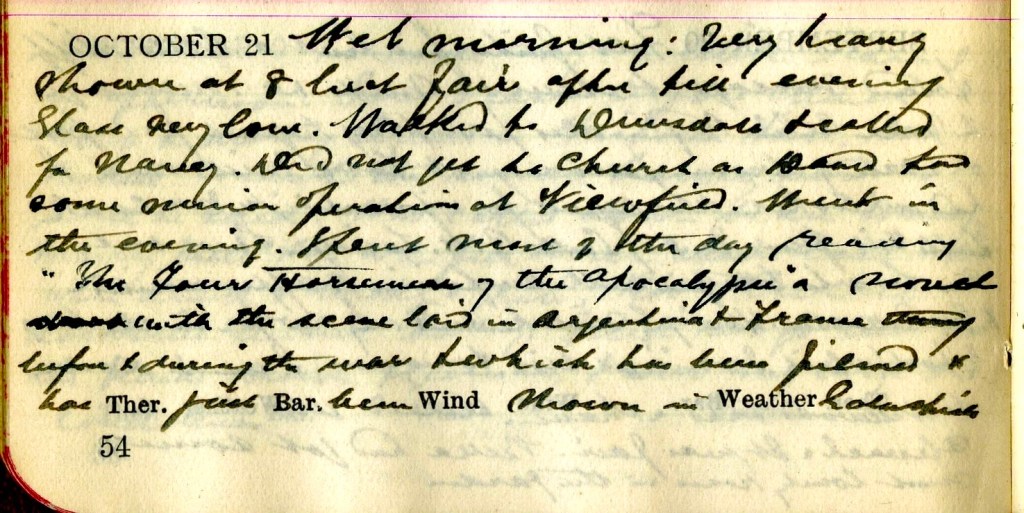 OCTOBER 21 Wet morning: Very heavy
shower at 8 but fair after till evening
Glass very low. Walked to & called
for Nancy. Did not get to Church as had
some minor operation at Viewfield. Went in
the evening. Spent most of the day reading
"The Four Horsemen of the Apocalypse" a novel
with the scene laid in Argentina & France
before & during the war & which has been filmed &
has Ther. just Bar. been Wind shown in Weather Galashiels
54